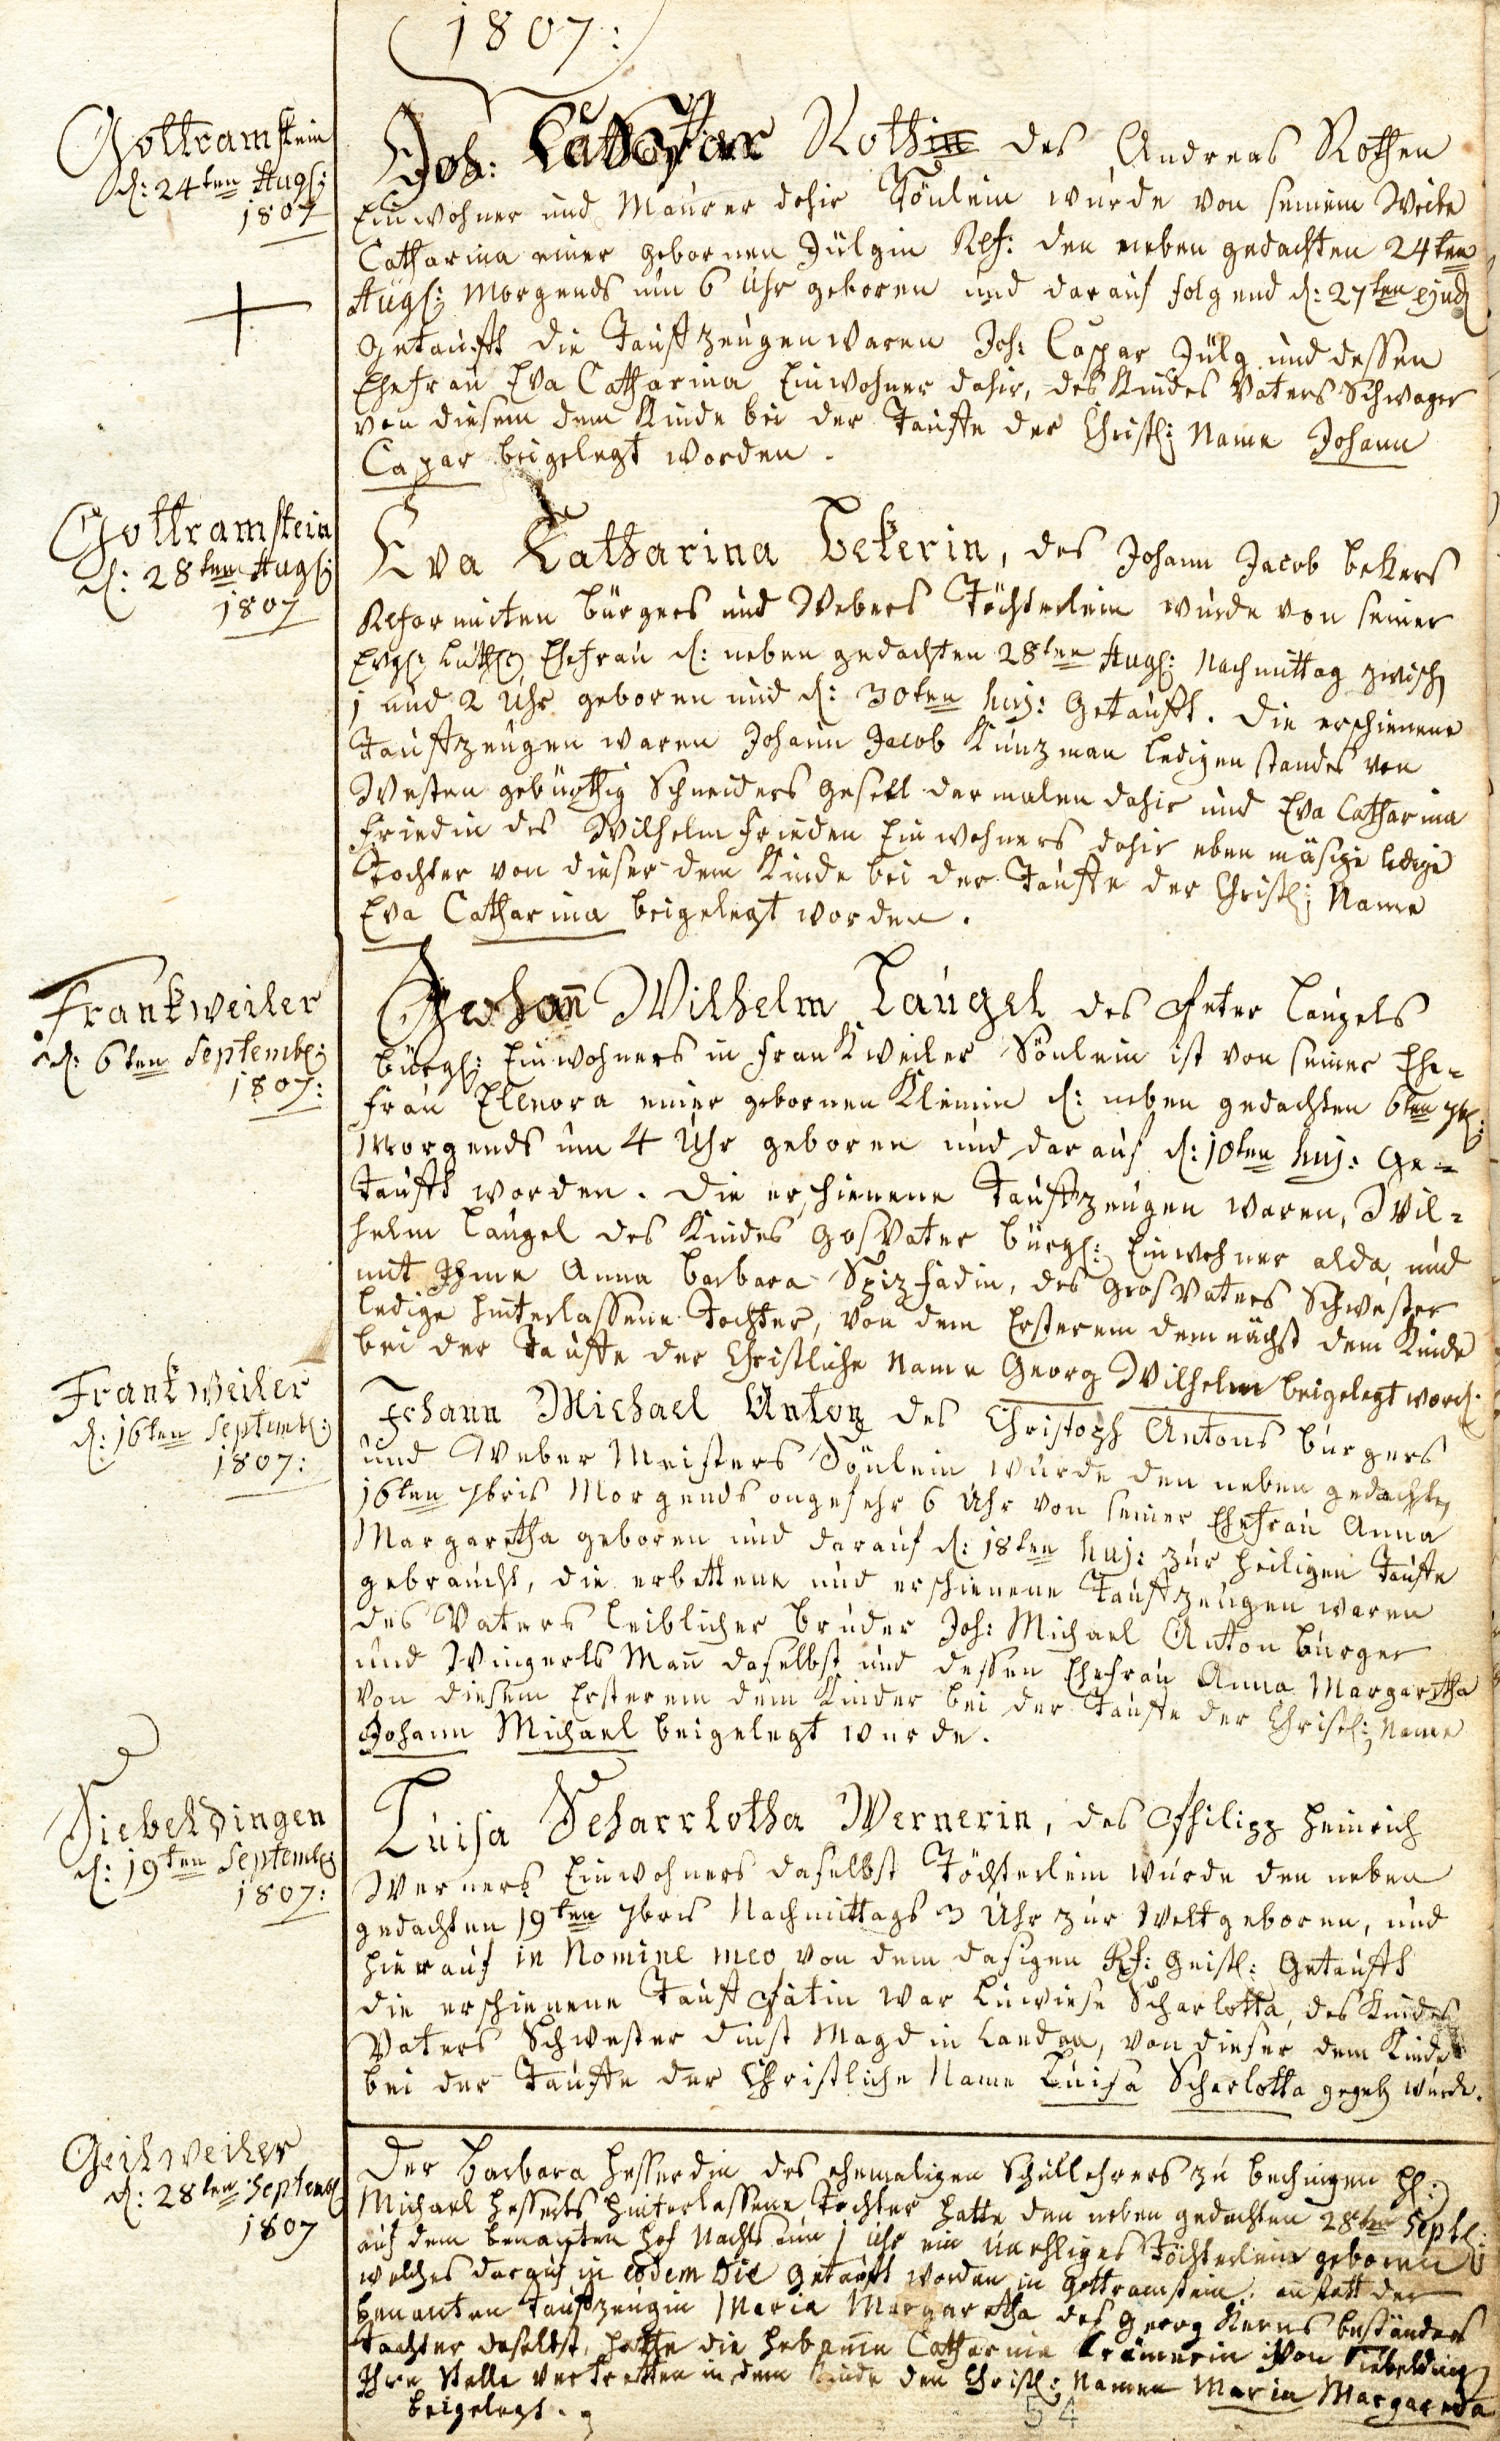 1807:
Gottramstein
d: 24ten Augs:
1807
Joh: Casspar Rothin des Andreas Rothen
Einwohner und Maurer dahir Sönlein wurde von seinem Weibe
Catharina einer gebornen Jülgin Ref: den neben gedachten 24ten
Augs: Morgends um 6 Uhr geboren und darauf folgend d: 27ten ejusd
getaufft die Taufzeugen waren Joh: Caspar Jülg und dessen
Ehefrau Eva Catharina Einwohner dahir, des Kindes Vaters Schwager
von diesem dem Kinde bei der Tauffe der Christl: Name Johann
Capar beigelegt worden.
Gottramstein
d: 28ten Augs:
1807
Eva Katharina Bekerin, des Johann Jacob Bekers
Reformirten Bürgers und Webers Töchterlein wurde von seiner
Evgl: Luth: Ehefrau d: neben gedachten 28ten Augs: Nachmittag zwisch
1 und 2 Uhr geboren und d: 30ten huj: Getaufft. Die erschienene
Taufzeugen waren Johann Jacob Kunzman ledigen standes von
Westen gebürthig Schneiders Gesell dermalen dahir und Eva Catharina
Friedin des Wilhelm Frieden Einwohners dahir eben mäsige ledige
Tochter von dieser dem Kinde bei der Tauffe der Christl: Name
Eva Catharina beigelegt worden.
Frankweiler
d: 6ten Septembr:
1807:
Johann Wilhelm Laugel des Peter Laugels
bürgl: Einwohners in Frankweiler Sönlein ist von seiner Ehe-
frau Elenora einer gebornen Klemin d: neben gedachten 6ten 7br:
Morgends um 4 Uhr geboren und darauf d: 10ten huj: Ge-
taufft worden. Die erschienene Taufzeugen waren, Wil-
helm Laugel des Kindes GosVater bürgl: Einwohner alda und
mit Ihme Anna Barbara Spizfadin, des GrosVaters Schwester
ledige hinterlassene Tochter, von dem Ersterem demnächst dem Kinde
bei der Tauffe der Christliche Name Georg Wilhelm beigelegt word:
Frankweiler
d: 16ten Septembr:
1807:
Johann Michael Anton des Christoph Antons burgers
und Weber Meisters Sönlein wurde den neben gedachten
16ten 7bris Morgends ongefehr 6 Uhr von seiner Ehefrau Anna
Margaretha geboren und darauf d: 18ten huj: zur heiligen Tauffe
gebraucht, die erbettene und erschienene Taufzeugen waren
des Vaters leiblicher bruder Joh: Michael Anton bürger
und Wingerts Mann daselbst und dessen Ehefrau Anna Margaretha
von diesem Ersterem dem Kinder bei der Tauffe der Christl: Name
Johann Michael beigelegt wurde.
Siebeldingen
d: 19ten Septembr:
1807:
Luisa Scharrlotha Wernerin, des Philipp Heinrich
Werners Einwohners daselbst Töchterlein wurde den neben
gedachten 19ten 7bris Nachmittags 3 Uhr zur Welt geboren, und
hierauf in Nomine meo von dem dasigen Rf: Geistl: Getaufft
die erschienene Tauf Patin war Luwiese Scharlotta, des Kindes
Vaters Schwester dinst Magd in Landau, von dieser dem Kinde
bei der Tauffe der Christliche Name Luisa Scharlotta gegeben wurde.
Geilweiler
d: 28ten Septembr
1807
Der Barbara Hessertin des ehemaligen Schullehrers zu bechingen
Michael Hesserts hinterlassene Tochter hatte den neben gedachten 28ten Septbr:
auf dem benanten Hof Nachts um 1 Uhr ein unehliges Töchterlein geboren
welches darauf in eodem Die getaufft worden in Gottramstein. anstatt der
benanten Taufzeugin Maria Margaretha des Georg Kerns beständers
Tochter daselbst, hatte die Hebamme Catharina Krämerin von Siebelding
Ihre Stelle vertretten in dem Kinde den Christl: Namen Maria Margareda
beigelegt.
54